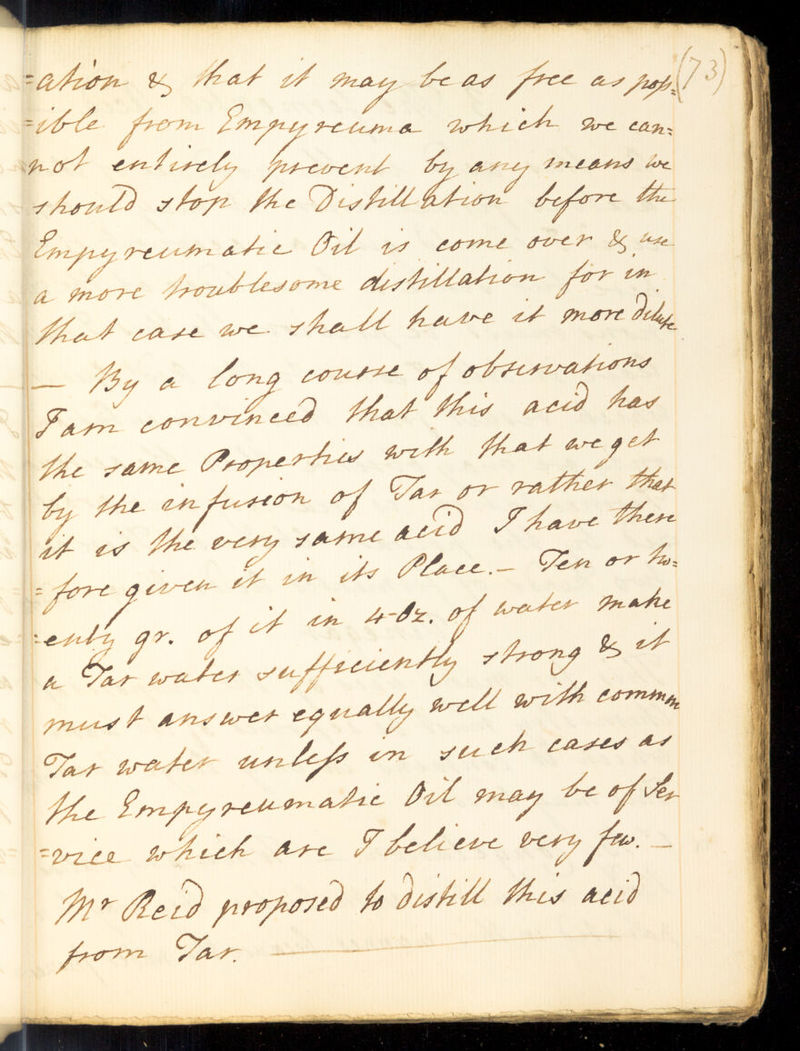 (73)
=ation & that it may be as free as poss=
=ible from Empyreuma which we can=
not entirely prevent by any means we
should stop the Distillation before the
Empyreumatic Oil is come over & use
a more troublesome distillation for in
that case we shall have it more dilute
— By a long course of observations
I am convinced that this acid has
the same Properties with that we get
by the infusion of Tar or rather that
it is the very same acid I have there
=fore given it in its Place. — Ten or tw=
=enty gr. of it in 4 Oz. of water make
a Tar water sufficiently strong & it
must answer equally well with common
Tar water unless in such cases as
the Empyreumatic Oil may be of Ser
=vice which are I believe very few. —
Mr Reid proposed to distill this acid
from Tar. —